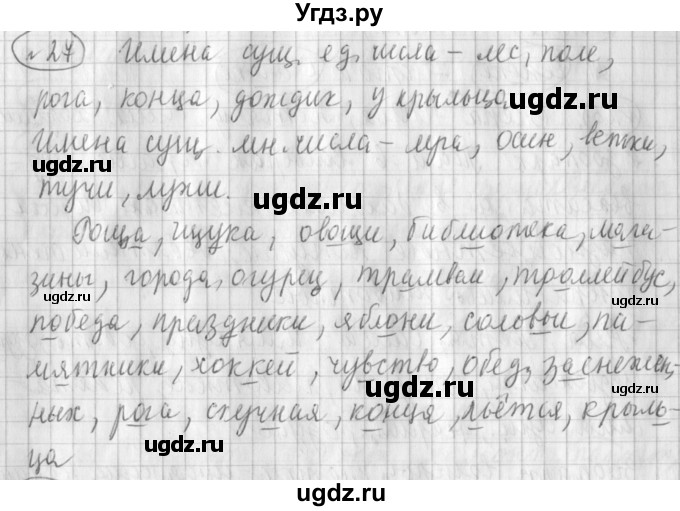 Угдз.ру
№ 27 Имена сущ. ед. числа – лес, поле,
рога, конца, дождик, у крыльца
ugdz.ru
Имена сущ. мн. числа – утра, осин, ветки,
ugdz.ru
тучи, лужи.
ugdz.ru
Роща, щука, овощи, библиотека, мага-
зины, города, огурец, трамваи, троллейбус,
ugdz.ru
ugdz.ru
победа, праздники, яблони, соловьи, па-
мятники, хоккей, чувство, обед, заснежен-
ugdz.ru
ных, рога, скучная, конца, льётся, крыль-
ugdz.ru
ugdz.ru
ца
ugdz.ru